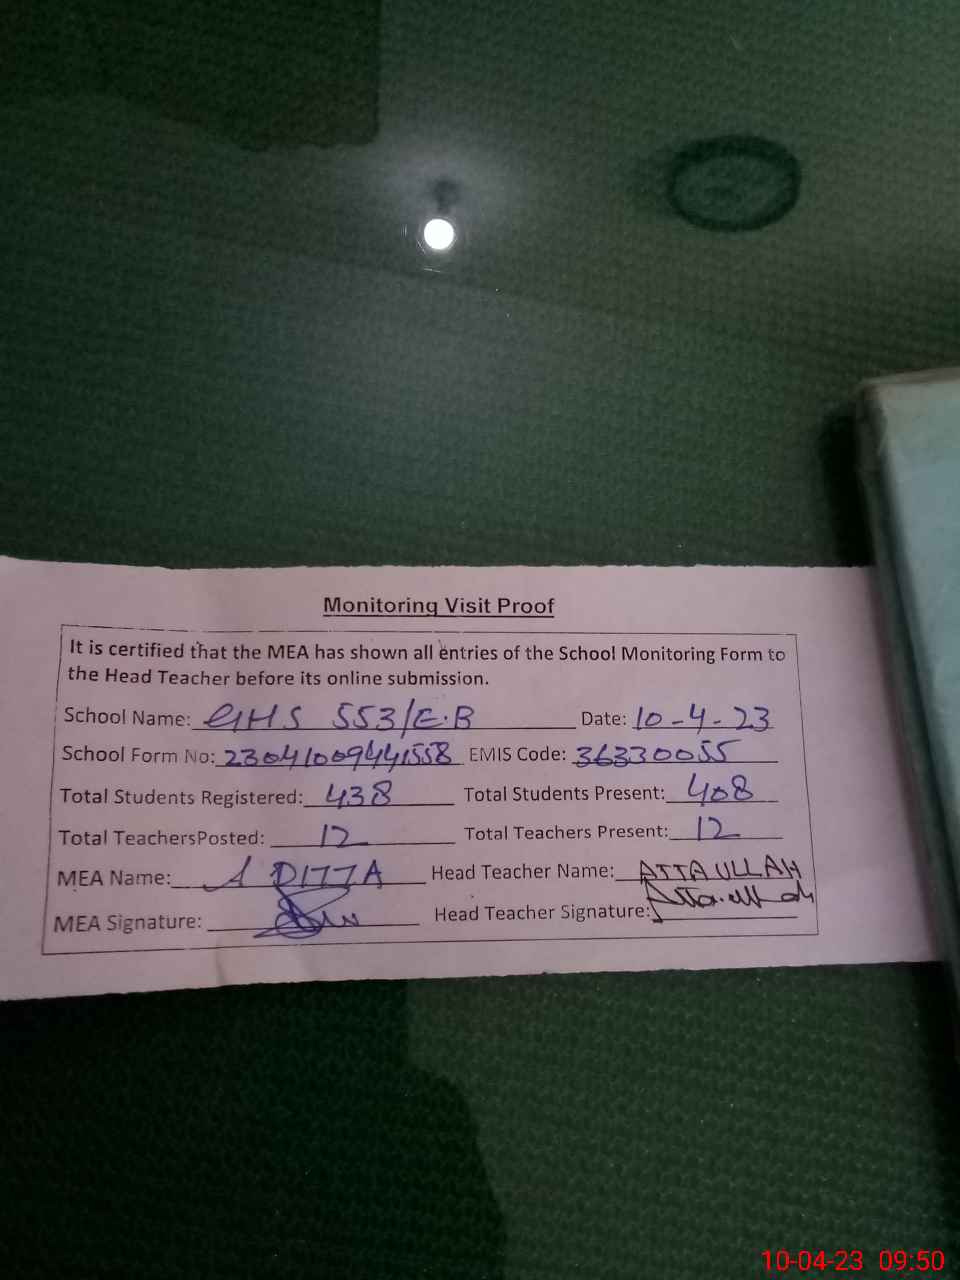 Monitoring Visit Proof
It is certified that the MEA has shown all entries of the School Monitoring Form to
the Head Teacher before its online submission.
School Name: GHS 553/E.B Date: 10-4-23
School Form No: 23041009441558 EMIS Code: 36330055
Total Students Registered: 438 Total Students Present: 408
Total TeachersPosted: 12 Total Teachers Present: 12
MEA Name: A DITTA Head Teacher Name: ATTAULLAH
MEA Signature: Head Teacher Signature: Attaullah
10-04-23 09:50